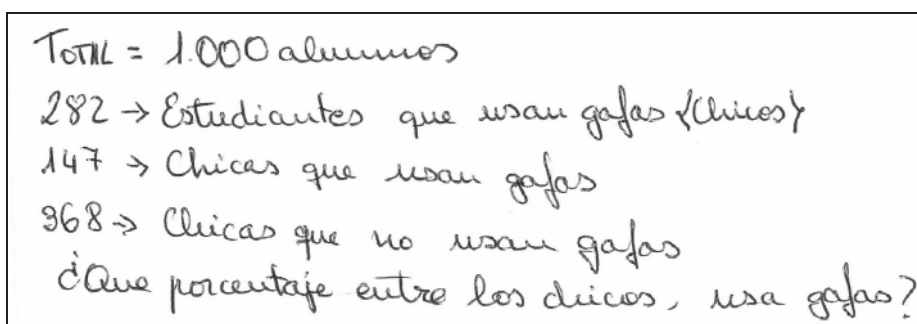 TOTAL = 1.000 alumnos
282 → Estudiantes que usan gafas {Chicos}
147 → Chicas que usan gafas
368 → Chicas que no usan gafas
¿Que porcentaje entre los chicos, usa gafas?